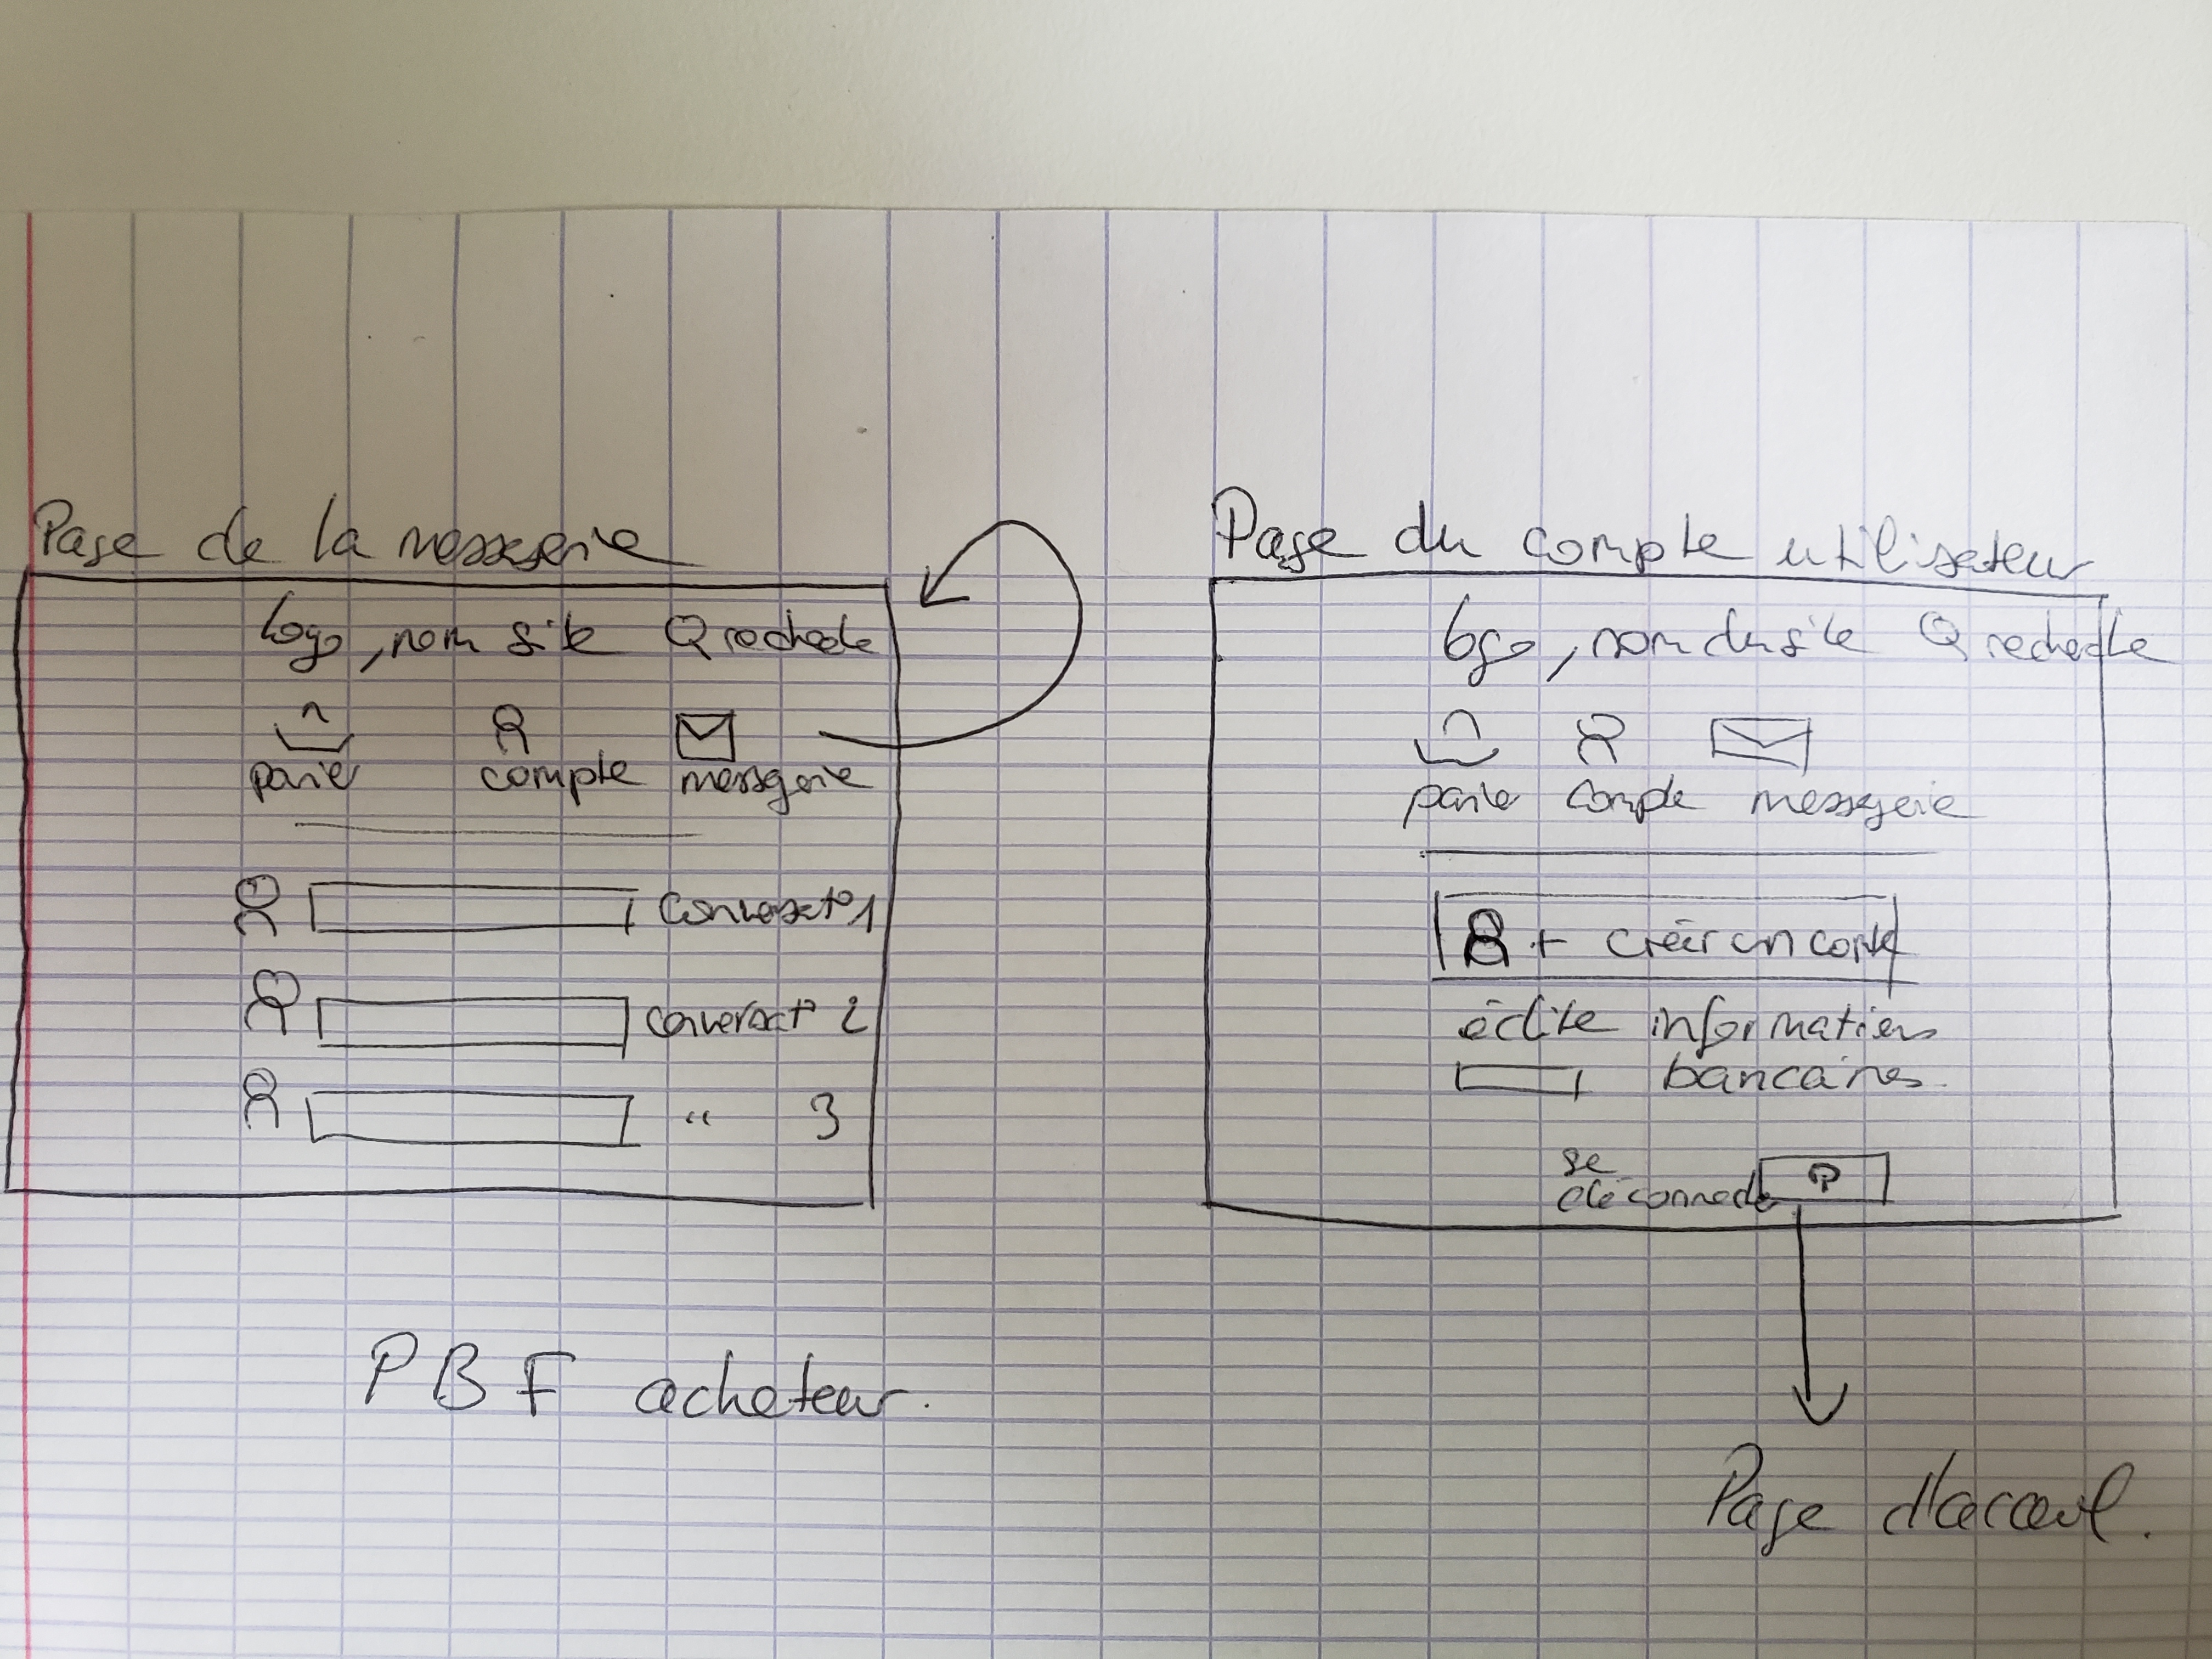 Page de la messagerie
logo, nom site Q recherche
panier compte messagerie
Conversat° 1
Conversat° 2
" 3
PBF acheteur.
Page du compte utilisateur
logo, nom du site Q recherche
panier compte messagerie
+ créer un compte
édite informations
bancaires.
se
déconnecter
Page d'accueil.